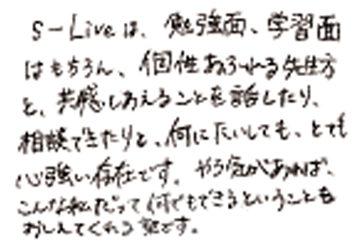 S-Liveは、勉強面、学習面
はもちろん、個性あふれる先生方
と、共感しあえることを話したり、
相談できたりと、何にたいしても、とても
心強い存在です。やる気があれば、
こんな私だって何でもできるということも
おしえてくれる塾です。